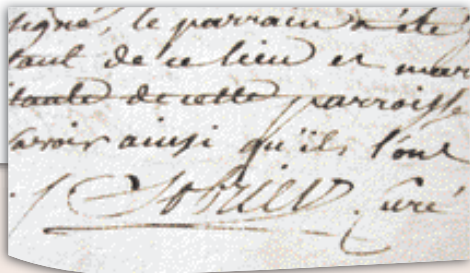 signé, le parrain a été
tant de ce lieu et mar
itante de cette parroisse
savoir ainsi qu'ils l'ont
Curé